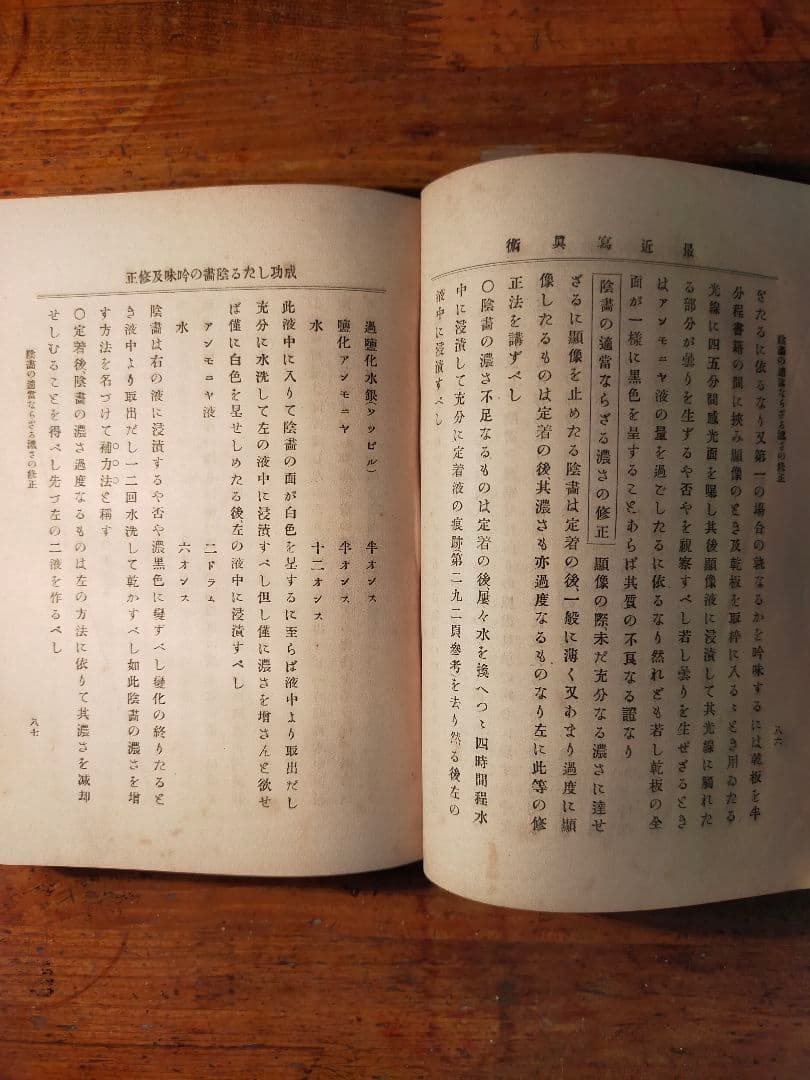 最近寫眞術
陰畵の適當ならざる濃さの修正
八六
ざたるに依るなり又第一の場合の孰なるかを吟味するには乾板を半
分程書籍の間に挾み顯像のとき及乾板を取枠に入るゝとき用ゐたる
光線に四五分間感光面を曝し其後顯像液に浸漬して其光線に觸れた
る部分が曇りを生ずるや否やを視察すべし若し曇りを生ぜざるとき
はアンモニヤ液の量を過ごしたるに依るなり然れども若し乾板の全
面が一樣に黑色を呈することあらば其質の不良なる證なり
陰畵の適當ならざる濃さの修正 顯像の際、未だ充分なる濃さに達せ
ざるに顯像を止めたる陰畵は定着の後、一般に薄く又あまり過度に顯
像したるものは定着の後、其濃さも亦過度なるものなり左に此等の修
正法を講ずべし
〇陰畵の濃さ不足なるものは定着の後屢々水を換へつゝ四時間程水
中に浸漬して充分に定着液の痕跡(第二九二頁參考)を去り然る後左の
液中に浸漬すべし
成功したる陰畵の吟味及修正
過鹽化水銀(ソッピル) 半オンス
鹽化アンモニヤ 半オンス
水 十二オンス
此液中に入りて陰畵の面が白色を呈するに至らば液中より取出だし
充分に水洗して左の液中に浸漬すべし但し僅に濃さを增さんと欲せ
ば僅に白色を呈せしめたる後、左の液中に浸漬すべし
アンモニヤ液 二ドラム
水 六オンス
陰畵は右の液に浸漬するや否や濃黑色に變ずべし變化の終りたると
き液中より取出だし一二回水洗して乾かすべし如此陰畵の濃さを增
す方法を名づけて補力法と稱す
〇定着後、陰畵の濃さ過度なるものは左の方法に依りて其濃さを減却
せしむることを得べし先づ左の二液を作るべし
陰畵の適當ならざる濃さの修正
八七